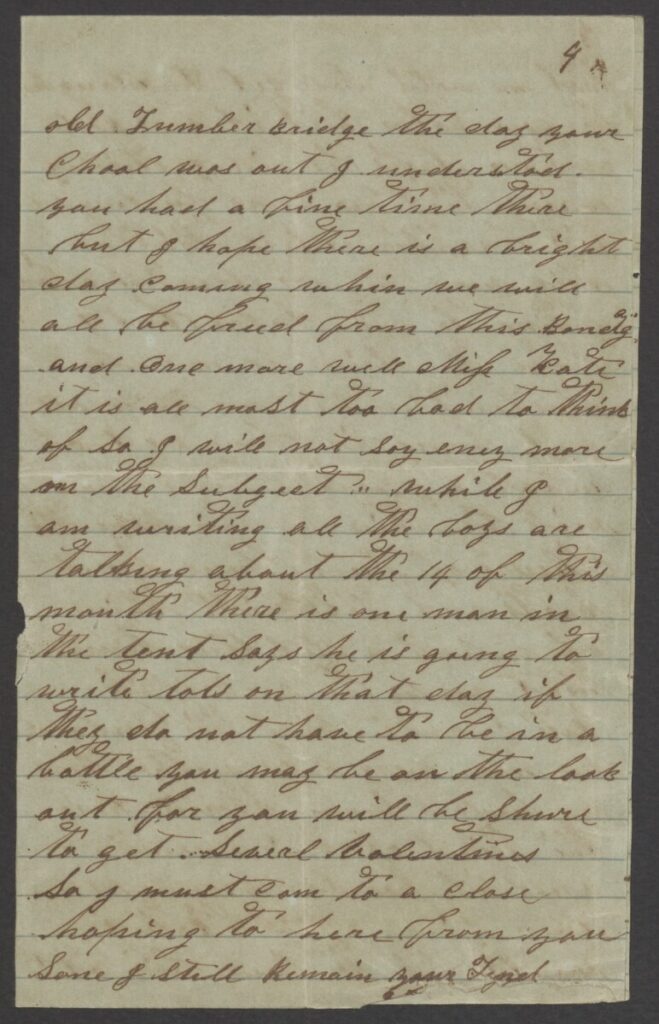 4
old Lumber Bridge the day your
Chool was out I understod.
you had a fine time there
but I hope there is a bright
day coming whin we will
all be freed from this Bondag
and one more well Miss Kate
it is all most too bad to think
of So I will not say eney more
on the Subgect " while I
am writing all the boys are
talking about the 14 of this
month there is one man in
the tent Says he is going to
write lots on that day if
they do not have to be in a
battle you may be on the look
out for you will be Shure
to get Severl Valentines
So I must com to a close
hoping to here from you
Sone I Still Remain your